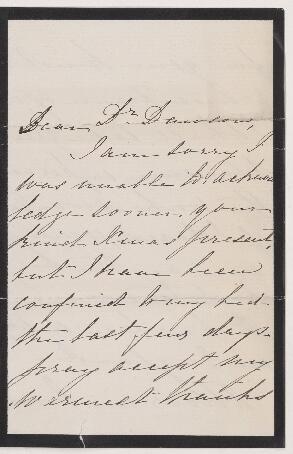 Dear Dr Dawson,
I am sorry I
was unable to acknow
ledge sooner, your
kind Xmas present,
but I have been
confined to my bed
the last few days-
pray accept my
warmest thanks